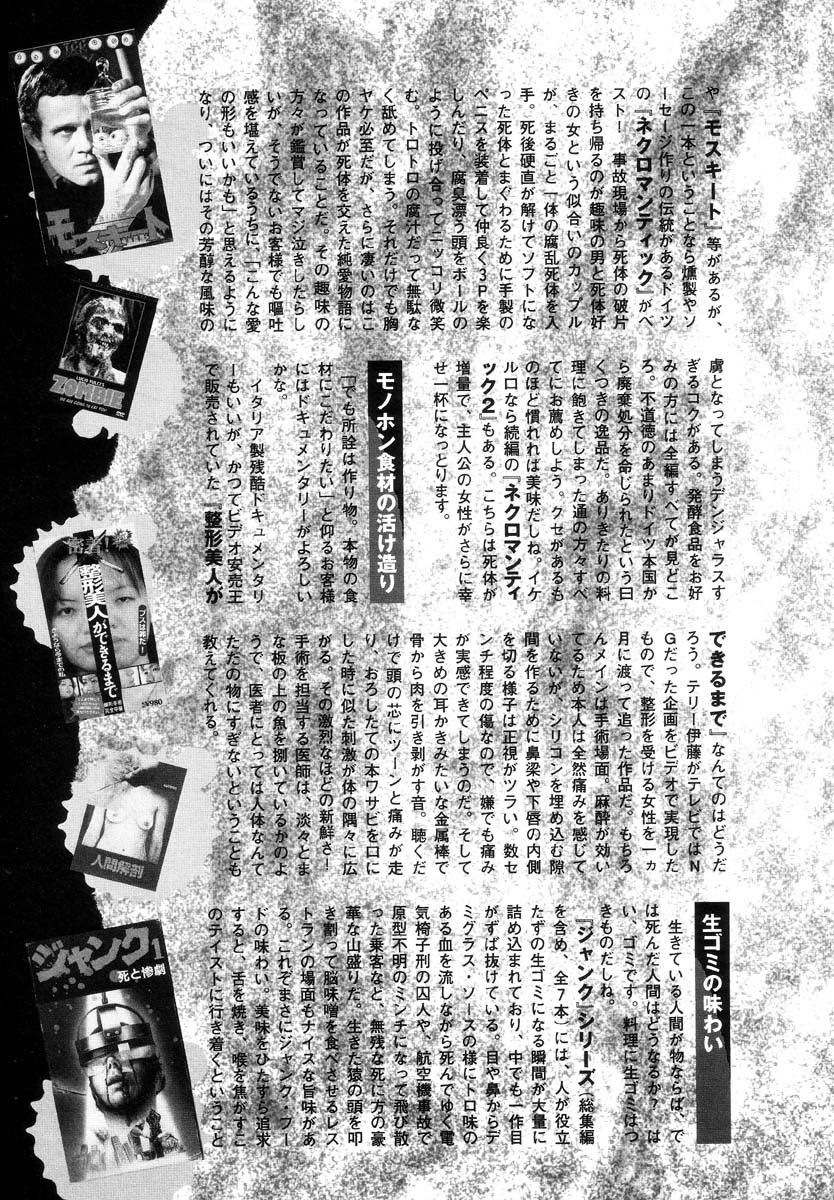 や『モスキート』等があるが、
この一本ということなら燻製やソ
ーセージ作りの伝統があるドイツ
の『ネクロマンティック』がベ
スト！　事故現場から死体の破片
を持ち帰るのが趣味の男と死体好
きの女という似合いのカップル
が、まるごと一体の腐乱死体を入
手。死後硬直が解けてソフトにな
った死体とまぐわるために手製の
ペニスを装着して仲良く３Ｐを楽
しんだり、腐臭漂う頭をボールの
ように投げ合ってニッコリ微笑
む。トロトロの腐汁だって無駄な
く舐めてしまう。それだけでも胸
ヤケ必至だが、さらに凄いのはこ
の作品が死体を交えた純愛物語に
なっていることだ。その趣味の
方々が鑑賞してマジ泣きしたらし
いが、そうでないお客様でも嘔吐
感を堪えているうちに、「こんな愛
の形もいいかも」と思えるように
なり、ついにはその芳醇な風味の
虜となってしまうデンジャラスす
ぎるコクがある。発酵食品をお好
みの方には全編すべてが見どこ
ろ。不道徳のあまりドイツ本国か
ら廃棄処分を命じられたという曰
くつきの逸品だ。ありきたりの料
理に飽きてしまった通の方々すべ
てにお薦めしよう。クセがあるも
のほど慣れれば美味だしね。イケ
ルロなら続編の『ネクロマンティ
ック２』もある。こちらは死体が
増量で、主人公の女性がさらに幸
せ一杯になっとります。
モノホン食材の活け造り
「でも所詮は作り物。本物の食
材にこだわりたい」と仰るお客様
にはドキュメンタリーがよろしい
かな。
イタリア製残酷ドキュメンタリ
ーもいいが、かつてビデオ安売王
で販売されていた『整形美人が
できるまで』なんてのはどうだ
ろう。テリー伊藤がテレビではＮ
Ｇだった企画をビデオで実現した
もので、整形を受ける女性を一ヵ
月に渡って追った作品だ。もちろ
んメインは手術場面。麻酔が効い
てるため本人は全然痛みを感じて
いないが、シリコンを埋め込む隙
間を作るために鼻梁や下唇の内側
を切る様子は正視がツラい。数セ
ンチ程度の傷なので、嫌でも痛み
が実感できてしまうのだ。そして
大きめの耳かきみたいな金属棒で
骨から肉を引き剥がす音。聴くだ
けで頭の芯にツーンと痛みが走
り、おろしたての本ワサビを口に
した時に似た刺激が体の隅々に広
がる。その激烈なほどの新鮮さ！
手術を担当する医師は、淡々とま
な板の上の魚を捌いているかのよ
うで、医者にとっては人体なんて
ただの物にすぎないということも
教えてくれる。
生ゴミの味わい
生きている人間が物ならば、で
は死んだ人間はどうなるか？　は
い、ゴミです。料理に生ゴミはつ
きものだしね。
『ジャンク』シリーズ（総集編
を含め、全７本）には、人が役立
たずの生ゴミになる瞬間が大量に
詰め込まれており、中でも一作目
がずば抜けている。目や鼻からデ
ミグラス・ソースの様にトロ味の
ある血を流しながら死んでゆく電
気椅子刑の囚人や、航空機事故で
原型不明のミンチになって飛び散
った乗客など、無残な死に方の豪
華な山盛りだ。生きた猿の頭を叩
き割って脳味噌を食べさせるレス
トランの場面もナイスな旨味があ
る。これぞまさにジャンク・フー
ドの味わい。美味をひたすら追求
すると、舌を焼き、喉を焦がすこ
のテイストに行き着くということ
モスキート
LUCIO FULCI'S
ZOMBIE
WE ARE GOING TO EAT YOU!
DVD
密着！
整形美人ができるまで
ブスは罪だー
¥980
人間解剖
ジャンク1
死と惨劇